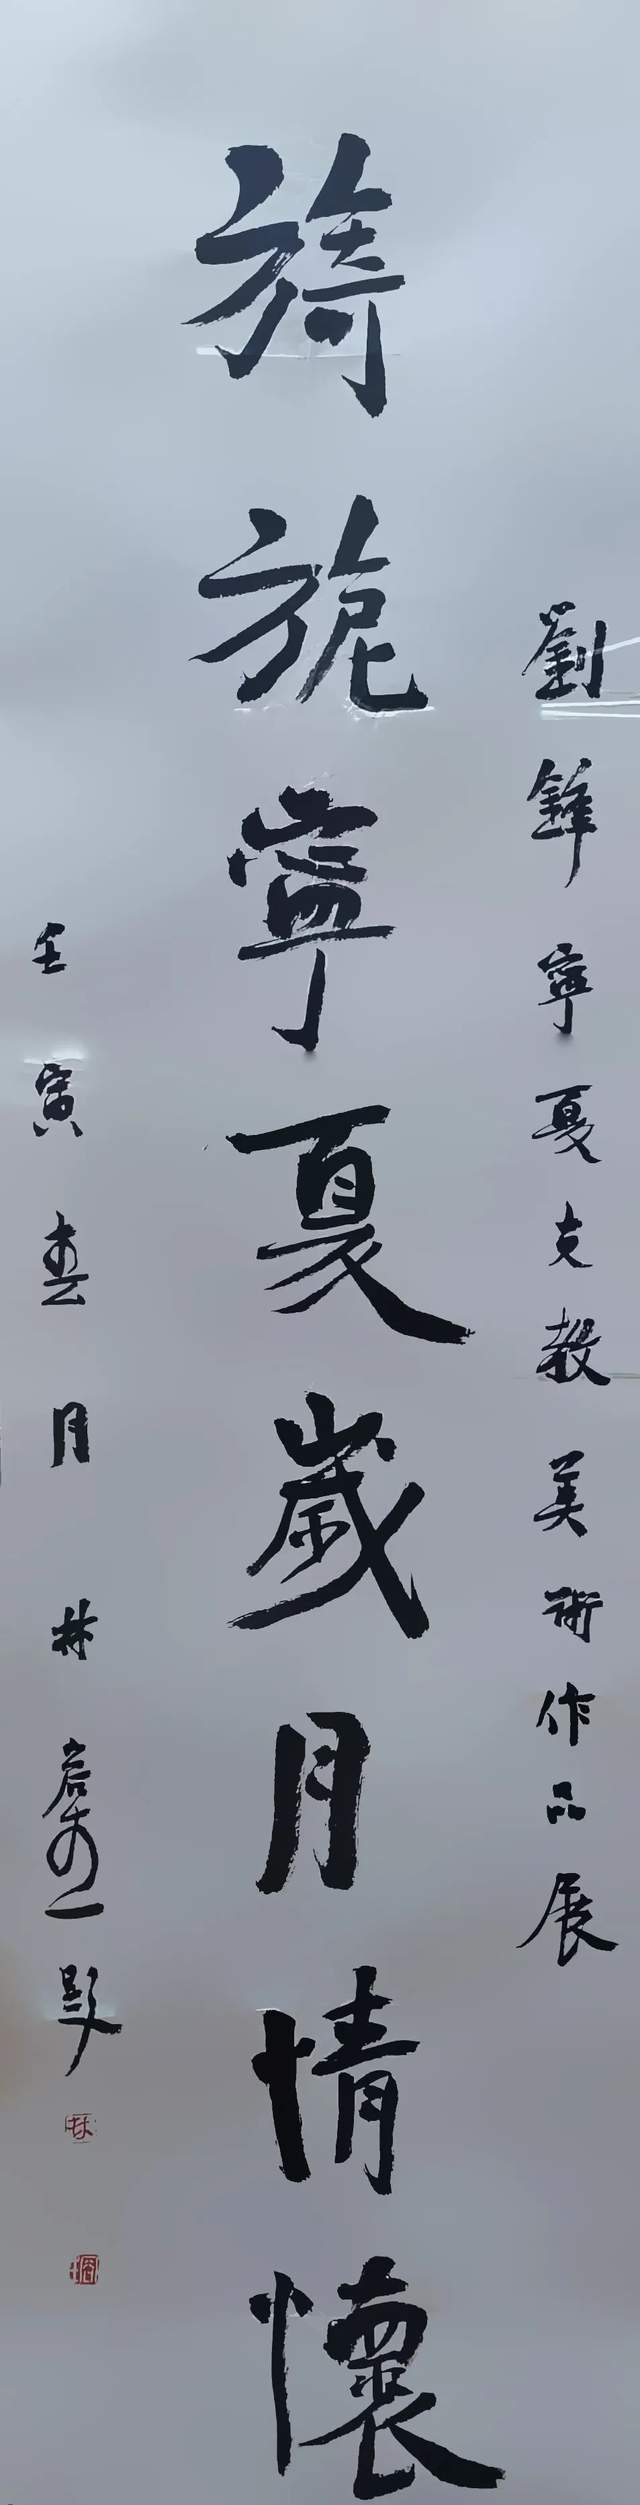 劉鋒寧夏支教美術作品展
旖旎寧夏歲月情懷
壬寅春月林題